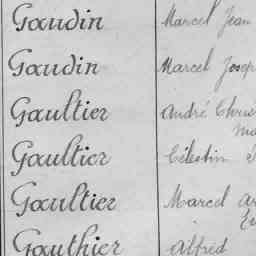 Gaudin Marcel Jean
Gaudin Marcel Josep
Gaultier André Chris
Gaultier Célestin
Gaultier Marcel ar
Gauthier Alfred